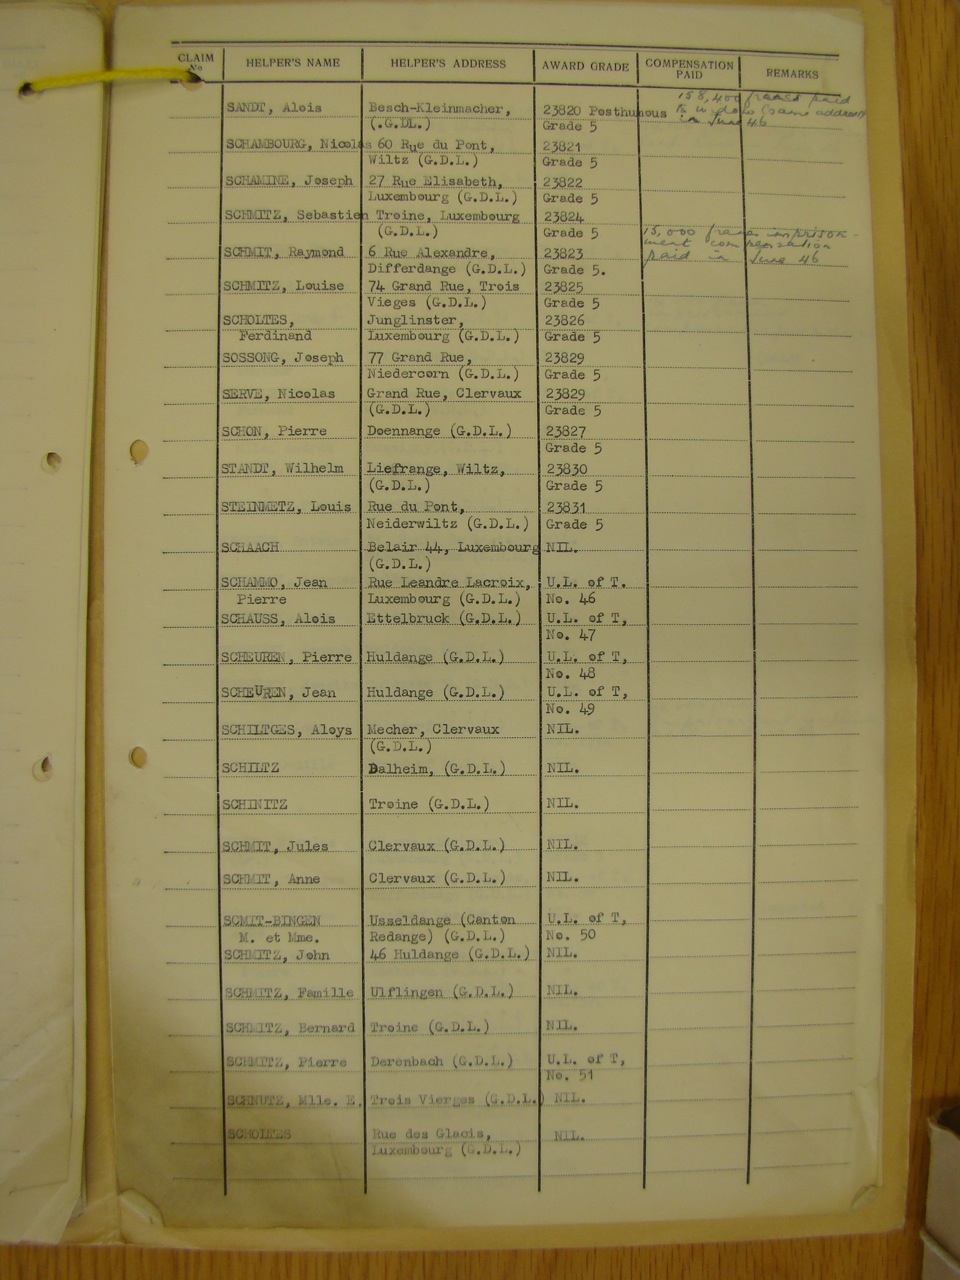 CLAIM No HELPER'S NAME HELPER'S ADDRESS AWARD GRADE COMPENSATION PAID REMARKS
158,400 francs paid
SANDT, Alois Besch-Kleinmacher, 23820 Posthumous to widow (same address)
(.G.DL.) Grade 5 in June 46
SCHAMBOURG, Nicolas 60 Rue du Pont, 23821
Wiltz (G.D.L.) Grade 5
SCHAMINE, Joseph 27 Rue Elisabeth, 23822
Luxembourg (G.D.L.) Grade 5
SCHMITZ, Sebastien Troine, Luxembourg 23824
(G.D.L.) Grade 5 15,000 francs imprison-
SCHMIT, Raymond 6 Rue Alexandre, 23823 ment compensation
Differdange (G.D.L.) Grade 5. paid in June 46
SCHMITZ, Louise 74 Grand Rue, Trois 23825
Vieges (G.D.L.) Grade 5
SCHOLTES, Junglinster, 23826
Ferdinand Luxembourg (G.D.L.) Grade 5
SOSSONG, Joseph 77 Grand Rue, 23829
Niedercorn (G.D.L.) Grade 5
SERVE, Nicolas Grand Rue, Clervaux 23829
(G.D.L.) Grade 5
SCHON, Pierre Doennange (G.D.L.) 23827
Grade 5
STANDT, Wilhelm Liefrange, Wiltz, 23830
(G.D.L.) Grade 5
STEINMETZ, Louis Rue du Pont, 23831
Neiderwiltz (G.D.L.) Grade 5
SCHAACH Belair 44, Luxembourg NIL.
(G.D.L.)
SCHAMMO, Jean Rue Leandre Lacroix, U.L. of T.
Pierre Luxembourg (G.D.L.) No. 46
SCHAUSS, Alois Ettelbruck (G.D.L.) U.L. of T,
No. 47
SCHEUREN, Pierre Huldange (G.D.L.) U.L. of T,
No. 48
SCHEUREN, Jean Huldange (G.D.L.) U.L. of T,
No. 49
SCHILTGES, Aloys Mecher, Clervaux NIL.
(G.D.L.)
SCHILTZ Dalheim, (G.D.L.) NIL.
SCHINITZ Troine (G.D.L.) NIL.
SCHMIT, Jules Clervaux (G.D.L.) NIL.
SCHMIT, Anne Clervaux (G.D.L.) NIL.
SCMIT-BINGEN Usseldange (Canton U.L. of T,
M. et Mme. Redange) (G.D.L.) No. 50
SCHMITZ, John 46 Huldange (G.D.L.) NIL.
SCHMITZ, Famille Ulflingen (G.D.L.) NIL.
SCHMITZ, Bernard Troine (G.D.L.) NIL.
SCHMITZ, Pierre Derenbach (G.D.L.) U.L. of T,
No. 51
SCHNUTZ, Mlle. E. Trois Vierges (G.D.L.) NIL.
SCHOLTES Rue des Glacis, NIL.
Luxembourg (G.D.L.)